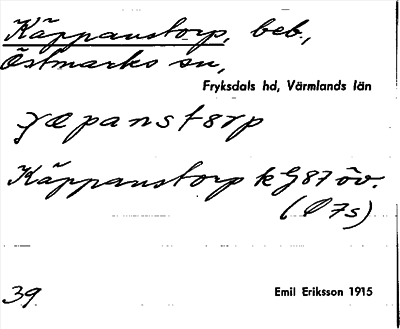 Käppanstorp, beb.,
Östmarks sn,
Fryksdals hd, Värmlands län
Käppanstorp kG87 öv.
(Ö7s)
39
Emil Eriksson 1915